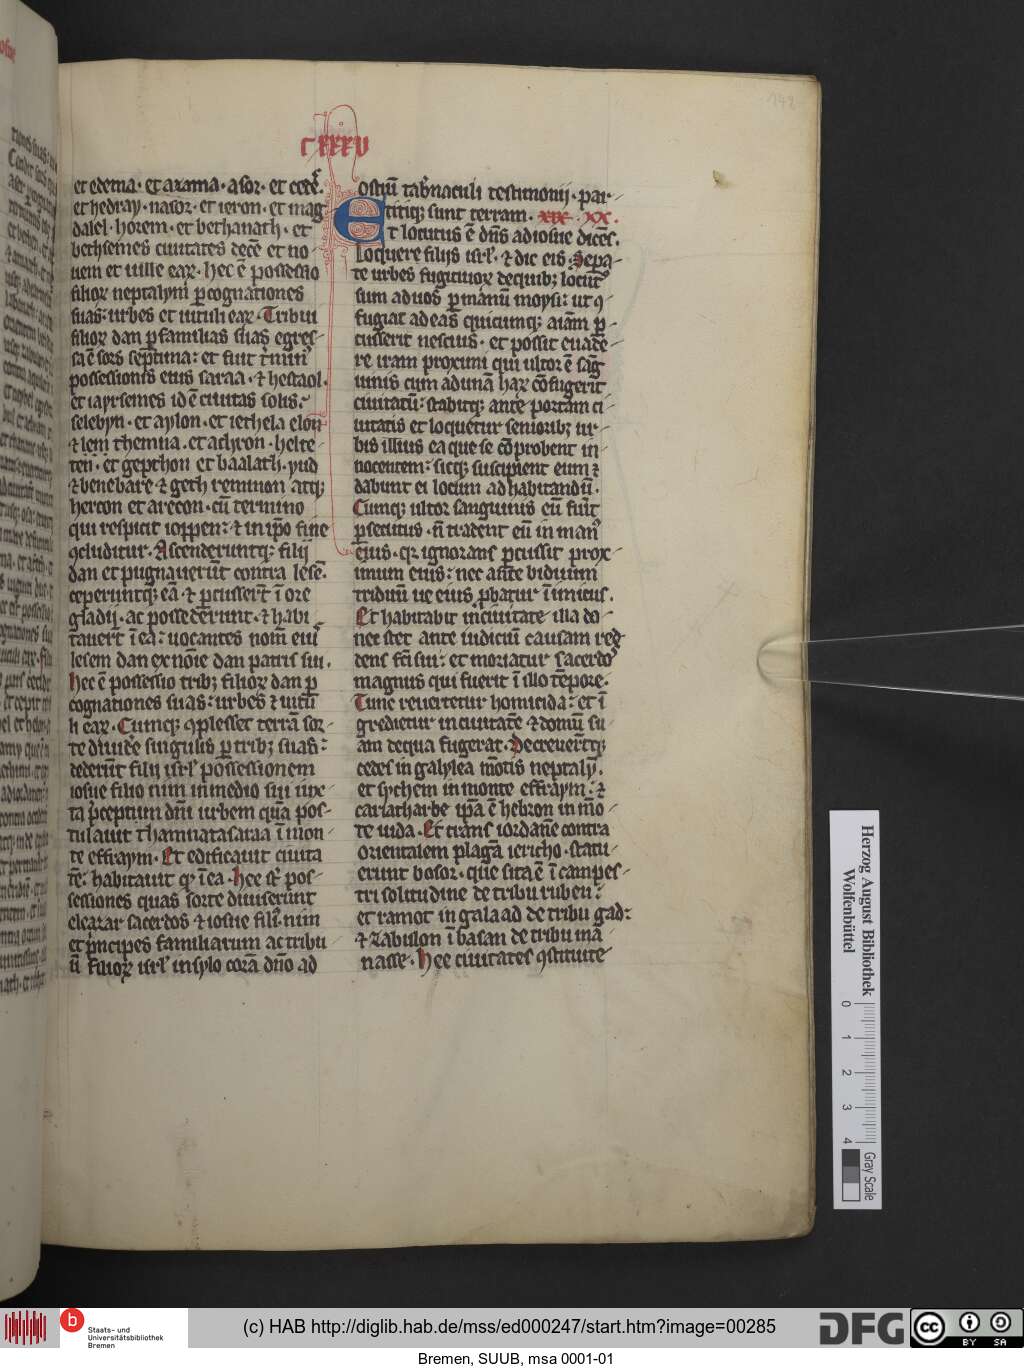 cxxxv
148
et edema · et arama · asor · et cedes̄ ·
et hedray · nasor · et ieron · et mag
dalel · horem · et bethanath · et
bethsemes ciuitates decē et no
uem et uille eaꝝ · hec ē possessio
filioꝝ neptalym ꝑ cognationes
suas: urbes et uiculi eaꝝ · Tribui
filioꝝ dan ꝑ familias suas egres
sa ē sors septima: et fuit tmin᾽
possessionis eius saraa · ⁊ hestaol ·
et iayrsemes id ē ciuitas solis:
selebyn · et aylon · et iethela elon
⁊ lem themna · et achron · helte
ten · et gepthon et baalath · yud
⁊ benebare ⁊ geth remmon atqꝫ
hercon et arecon · cū termino
qui respicit ioppen: ⁊ in ip̄o fine
ꝯcluditur · Ascenderuntqꝫ filij
dan et pugnauerūt contra lesē ·
ceperuntqꝫ eā · ⁊ ꝑcusserūt ī ore
gladij · ac possederunt · ⁊ habi
tauerūt ī ea: uocantes nom̄ eiꝰ
lesem dan ex noīe dan patris sui ·
Hec ē possessio tribꝫ filioꝝ dan ꝑ
cognationes suas: urbes ⁊ uicu
li eaꝝ · Cumqꝫ ꝯplesset terrā sor
te diuide᾽ singulis ꝑ tribꝫ suas:
dederūt filij isrl᾽ possessionem
iosue filio nun in medio sui iux
ta p̄ceptum dn̄i urbem quā pos
tulauit thamnatasaraa ī mon
te effraym · Et edificauit ciuita
tē: habitauit qꝫ ī ea · Hee st̄ pos
sessiones quas sorte diuiserunt
eleazar sacerdos ⁊ iosue fili᾽ nun
et p̄ncipes familiarum ac tribu
ū filioꝝ isrl᾽ in sylo corā dn̄o ad
ostiū tab᾽naculi testimonij · par
titiqꝫ sunt terram · xix · xx ·
Et locutus ē dn̄s ad iosue dicēs ·
Loquere filijs isrl᾽ · ⁊ dic eis · Sepa
te urbes fugitiuoꝝ de quibꝫ locut᾽
sum ad uos ꝑ manū moysi: ut ꝯ
fugiat ad eas quicumqꝫ aīam ꝑ
cusserit nescius · et possit euade
re iram proximi qui ultor ē sāg
uinis cum ad unā haꝝ cōfugerit
ciuitatū: stabitqꝫ ante portam ci
uitatis et loquetur senioribꝫ ur
bis illius ea que se cōprobent in
nocentem: sicqꝫ suscipient eum ⁊
dabunt ei locum ad habitandū ·
Cumqꝫ ultor sanguinis eū fu᾽it
ꝑsecutus · n̄ tradent eū in man᾽
eius · qꝛ ignorans ꝑcussit prox
imum eius: nec an̄te biduum
triduū ue eius ꝓbatur īimicus ·
Et habitabit in ciuitate illa do
nec stet ante iudiciū causam red
dens fc̄i sui: et moriatur sacerdos
magnus qui fuerit ī illo tēpore ·
Tunc reuertetur homicida: et ī
gredietur in ciuitatē ⁊ domū su
am de qua fugerat · Decreuerūtqꝫ
cedes in galylea mōtis neptaly᾽ ·
et sychem in monte effraym: ⁊
cariatharbe ip̄a ē hebron in mō
te iuda · Et trans iordanē contra
orientalem plagā iericho · statu
erunt bosor · que sita ē ī campes
tri solitudine de tribu ruben:
et ramot in galaad de tribu gad:
⁊ zabulon ī basan de tribu ma
nasse · Hee ciuitates ꝯstitute
Herzog August Bibliothek
Wolfenbüttel
0 1 2 3 4
Gray Scale
b Staats- und
Universitätsbibliothek
Bremen
(c) HAB http://diglib.hab.de/mss/ed000247/start.htm?image=00285
DFG
cc BY SA
Bremen, SUUB, msa 0001-01